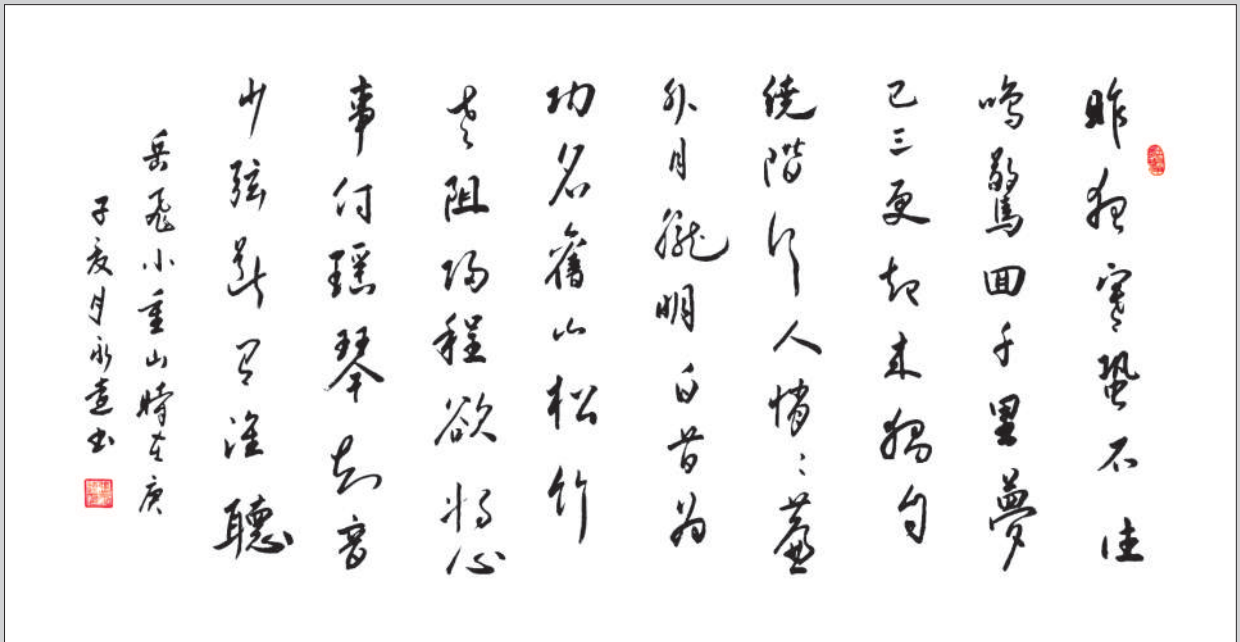 昨夜寒蛩不住
鳴驚回千里夢
已三更起来獨自
繞階行人悄悄簾
外月朧明白首为
功名舊山松竹
老阻歸程欲将心
事付瑶琴知音
少弦斷有誰聽
岳飛小重山時在庚
子夏月永书